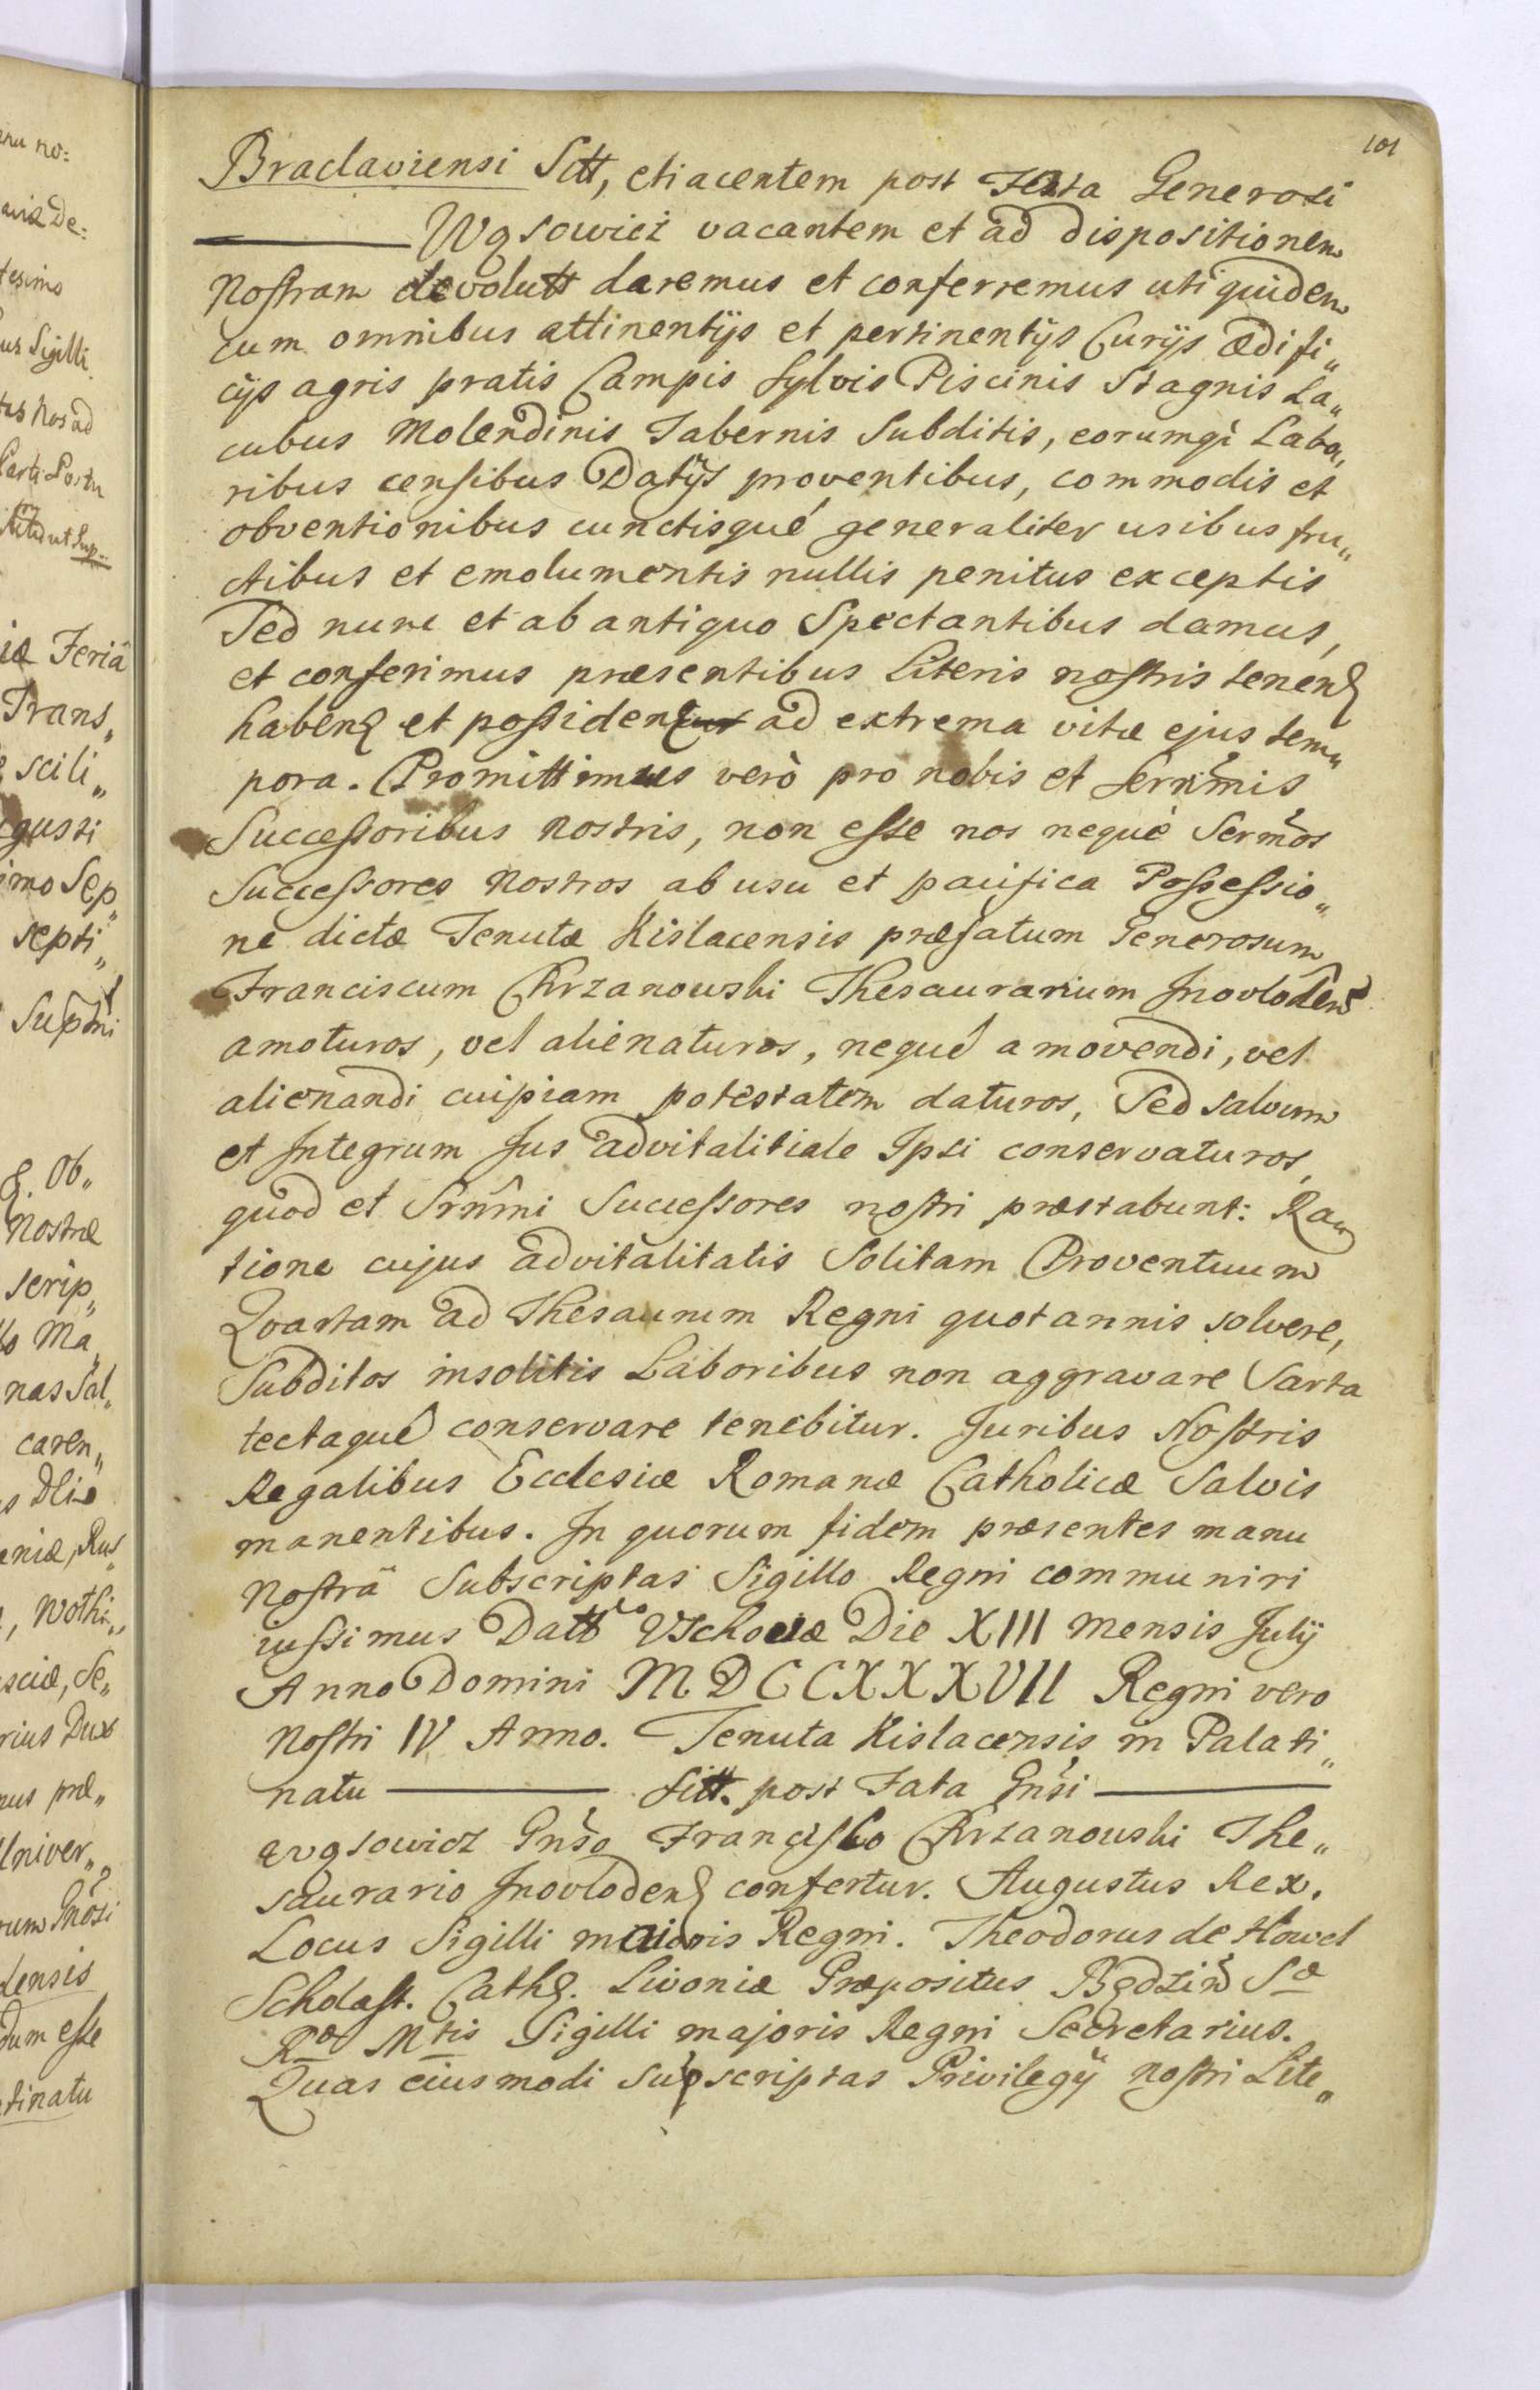 101
Braclaviensi Sitt, etiacentem post Fata Generosi
Wąsowicz vacantem et ad dispositionem
Nostram devolutt daremus et conferremus uti quidem
cum omnibus attinentijs et pertinentijs Curijs ædifi„
cijs agris pratis Campis Sylvis Piscinis Stagnis La„
cubus Molendinis Tabernis Subditis, eorumq̀ Labo„
ribus censibus Datijs proventibus, commodis et
obventionibus cunctisqué generaliter usibus fru„
ctibus et emolumentis nullis penitus exceptis
Sed nunc et ab antiquo Spectantibus damus,
et conferimus præsentibus Literis nostris tenenꝭ
habenꝭ et possidenꝭ ad extrema vitæ ejus tem„
pora. Promittimus verò pro nobis et Sernm̃is
Successoribus nostris, non esse nos nequè Serm̃os
Successores Nostros ab usu et pacifica Possessio„
ne dictæ Tenutæ Kislacensis præfatum Generosum
Franciscum Chrzanowski Thesaurarium Inovlodens̃
amoturos, vel alienaturos, nequé amovendi, vel
alienandi cuipiam potestatem daturos, Sed salvum
et Integrum Jus advitalitiale Ipsi conservaturos,
quod et Srnm̃i Successores nostri præstabunt: Ra„
tione cujus advitalitatis Solitam Proventuum
Quartam ad Thesaurum Regni quotannis solvere,
Subditos insolitis Laboribus non aggravare Sarta
tectaqué conservare tenebitur. Juribus Nostris
Regalibus Ecclesiæ Romanæ Catholicæ Salvis
manentibus. In quorum fidem præsentes manu
Nostrâ Subscriptas Sigillo Regni communiri
iussimus Datt Vschovæ Die XIII Mensis Julij
Anno Domini MDCCXXXVII Regni vero
Nostri IV Anno. Tenuta Kislacensis in Palati„
natu Sitt. post Fata Gnsi
Wąsowicz Gnso Francisco Chrzanowski The„
saurario Inovlodenꝭ confertur. Augustus Rex.
Locus Sigilli maioris Regni. Theodorus de Howel
Scholast. Cathꝭ. Livoniæ Præpositus Będzin̄ Sæ
Ræ Mtis Sigilli majoris Regni Secretarius.
Quas eiusmodi supscriptas Privilegij nostri Lite„